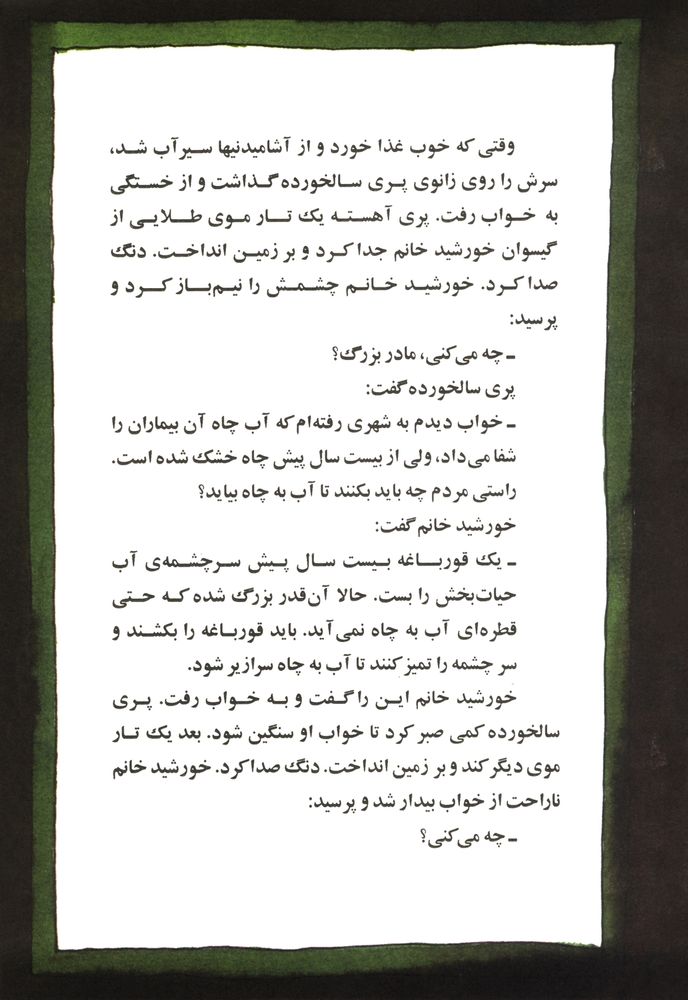 وقتی که خوب غذا خورد و از آشامیدنیها سیرآب شد،
سرش را روی زانوی پری سالخورده گذاشت و از خستگی
به خواب رفت. پری آهسته یک تار موی طلایی از
گیسوان خورشید خانم جدا کرد و بر زمین انداخت. دنگ
صدا کرد. خورشید خانم چشمش را نیم‌باز کرد و
پرسید:
ـ چه می‌کنی، مادر بزرگ؟
پری سالخورده گفت:
ـ خواب دیدم به شهری رفته‌ام که آب چاه آن بیماران را
شفا می‌داد، ولی از بیست سال پیش چاه خشک شده است.
راستی مردم چه باید بکنند تا آب به چاه بیاید؟
خورشید خانم گفت:
ـ یک قورباغه بیست سال پیش سرچشمه‌ی آب
حیات‌بخش را بست. حالا آن‌قدر بزرگ شده که حتی
قطره‌ای آب به چاه نمی‌آید. باید قورباغه را بکشند و
سر چشمه را تمیز کنند تا آب به چاه سرازیر شود.
خورشید خانم این را گفت و به خواب رفت. پری
سالخورده کمی صبر کرد تا خواب او سنگین شود. بعد یک تار
موی دیگر کند و بر زمین انداخت. دنگ صدا کرد. خورشید خانم
ناراحت از خواب بیدار شد و پرسید:
ـ چه می‌کنی؟